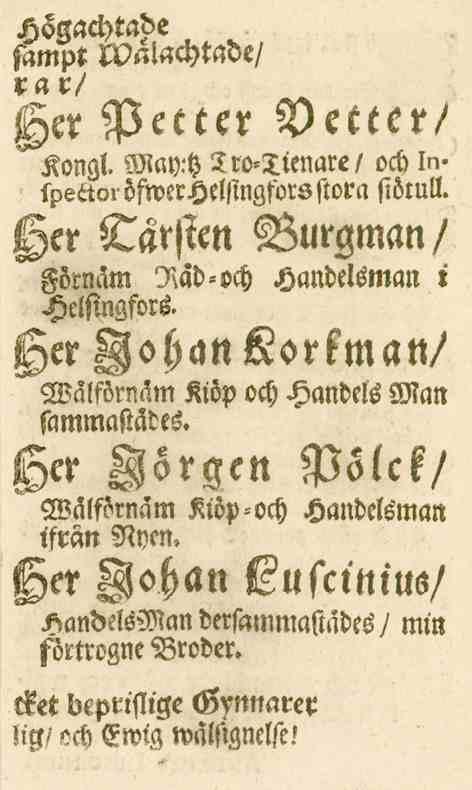 Högachtade
sampt Wälachtade/
rar/
Her Petter Vetter/
Kongl. May:tz Tro-Tienare / och In-
spector öfwer Helsingfors stora siötull.
Her Tårsten Burgman /
Förnäm Råd-och Handelsman i
Helsingfors.
Her Johan Korkman/
Wälförnäm Kiöp och Handels Man
sammastädes.
Her Jörgen Pölck/
Wälförnäm Kiöp-och Handelsman
ifrån Nyen.
Her Johan Luscinius/
HandelsMan dersammastädes / min
förtrogne Broder.
cket beprislige Gynnarer
lig/ och Ewig wälsignelse!